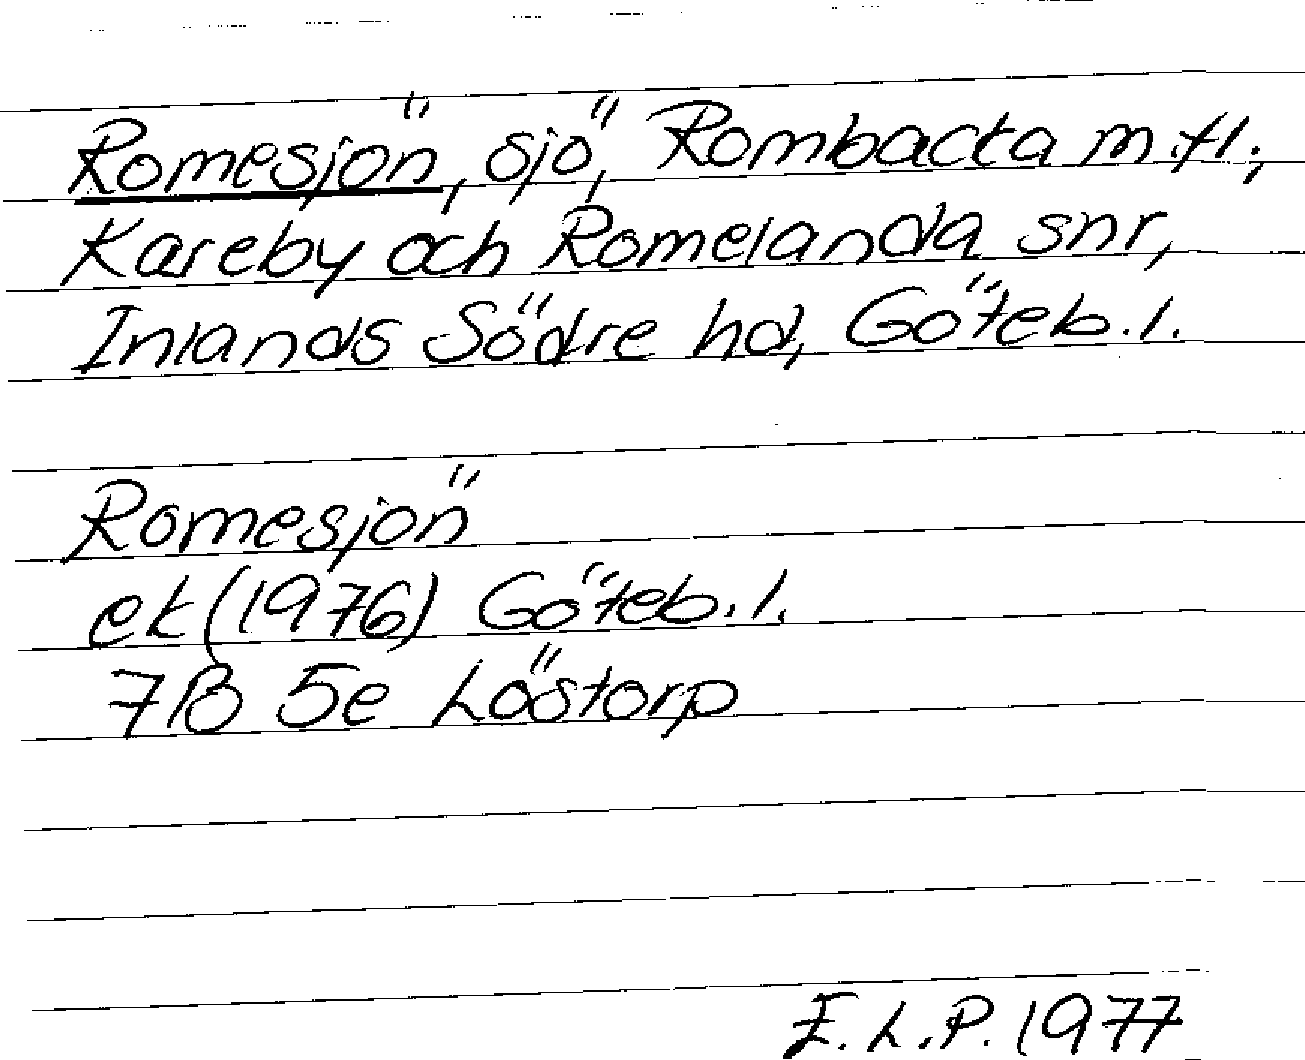 Romesjön, sjö, Rombacka m.fl.,
Kareby och Romelanda snr,
Inlands Södre hd, Göteb.l.
Romesjön
ek (1976) Göteb.l.
7B 5e Löstorp
E.L.P. 1977